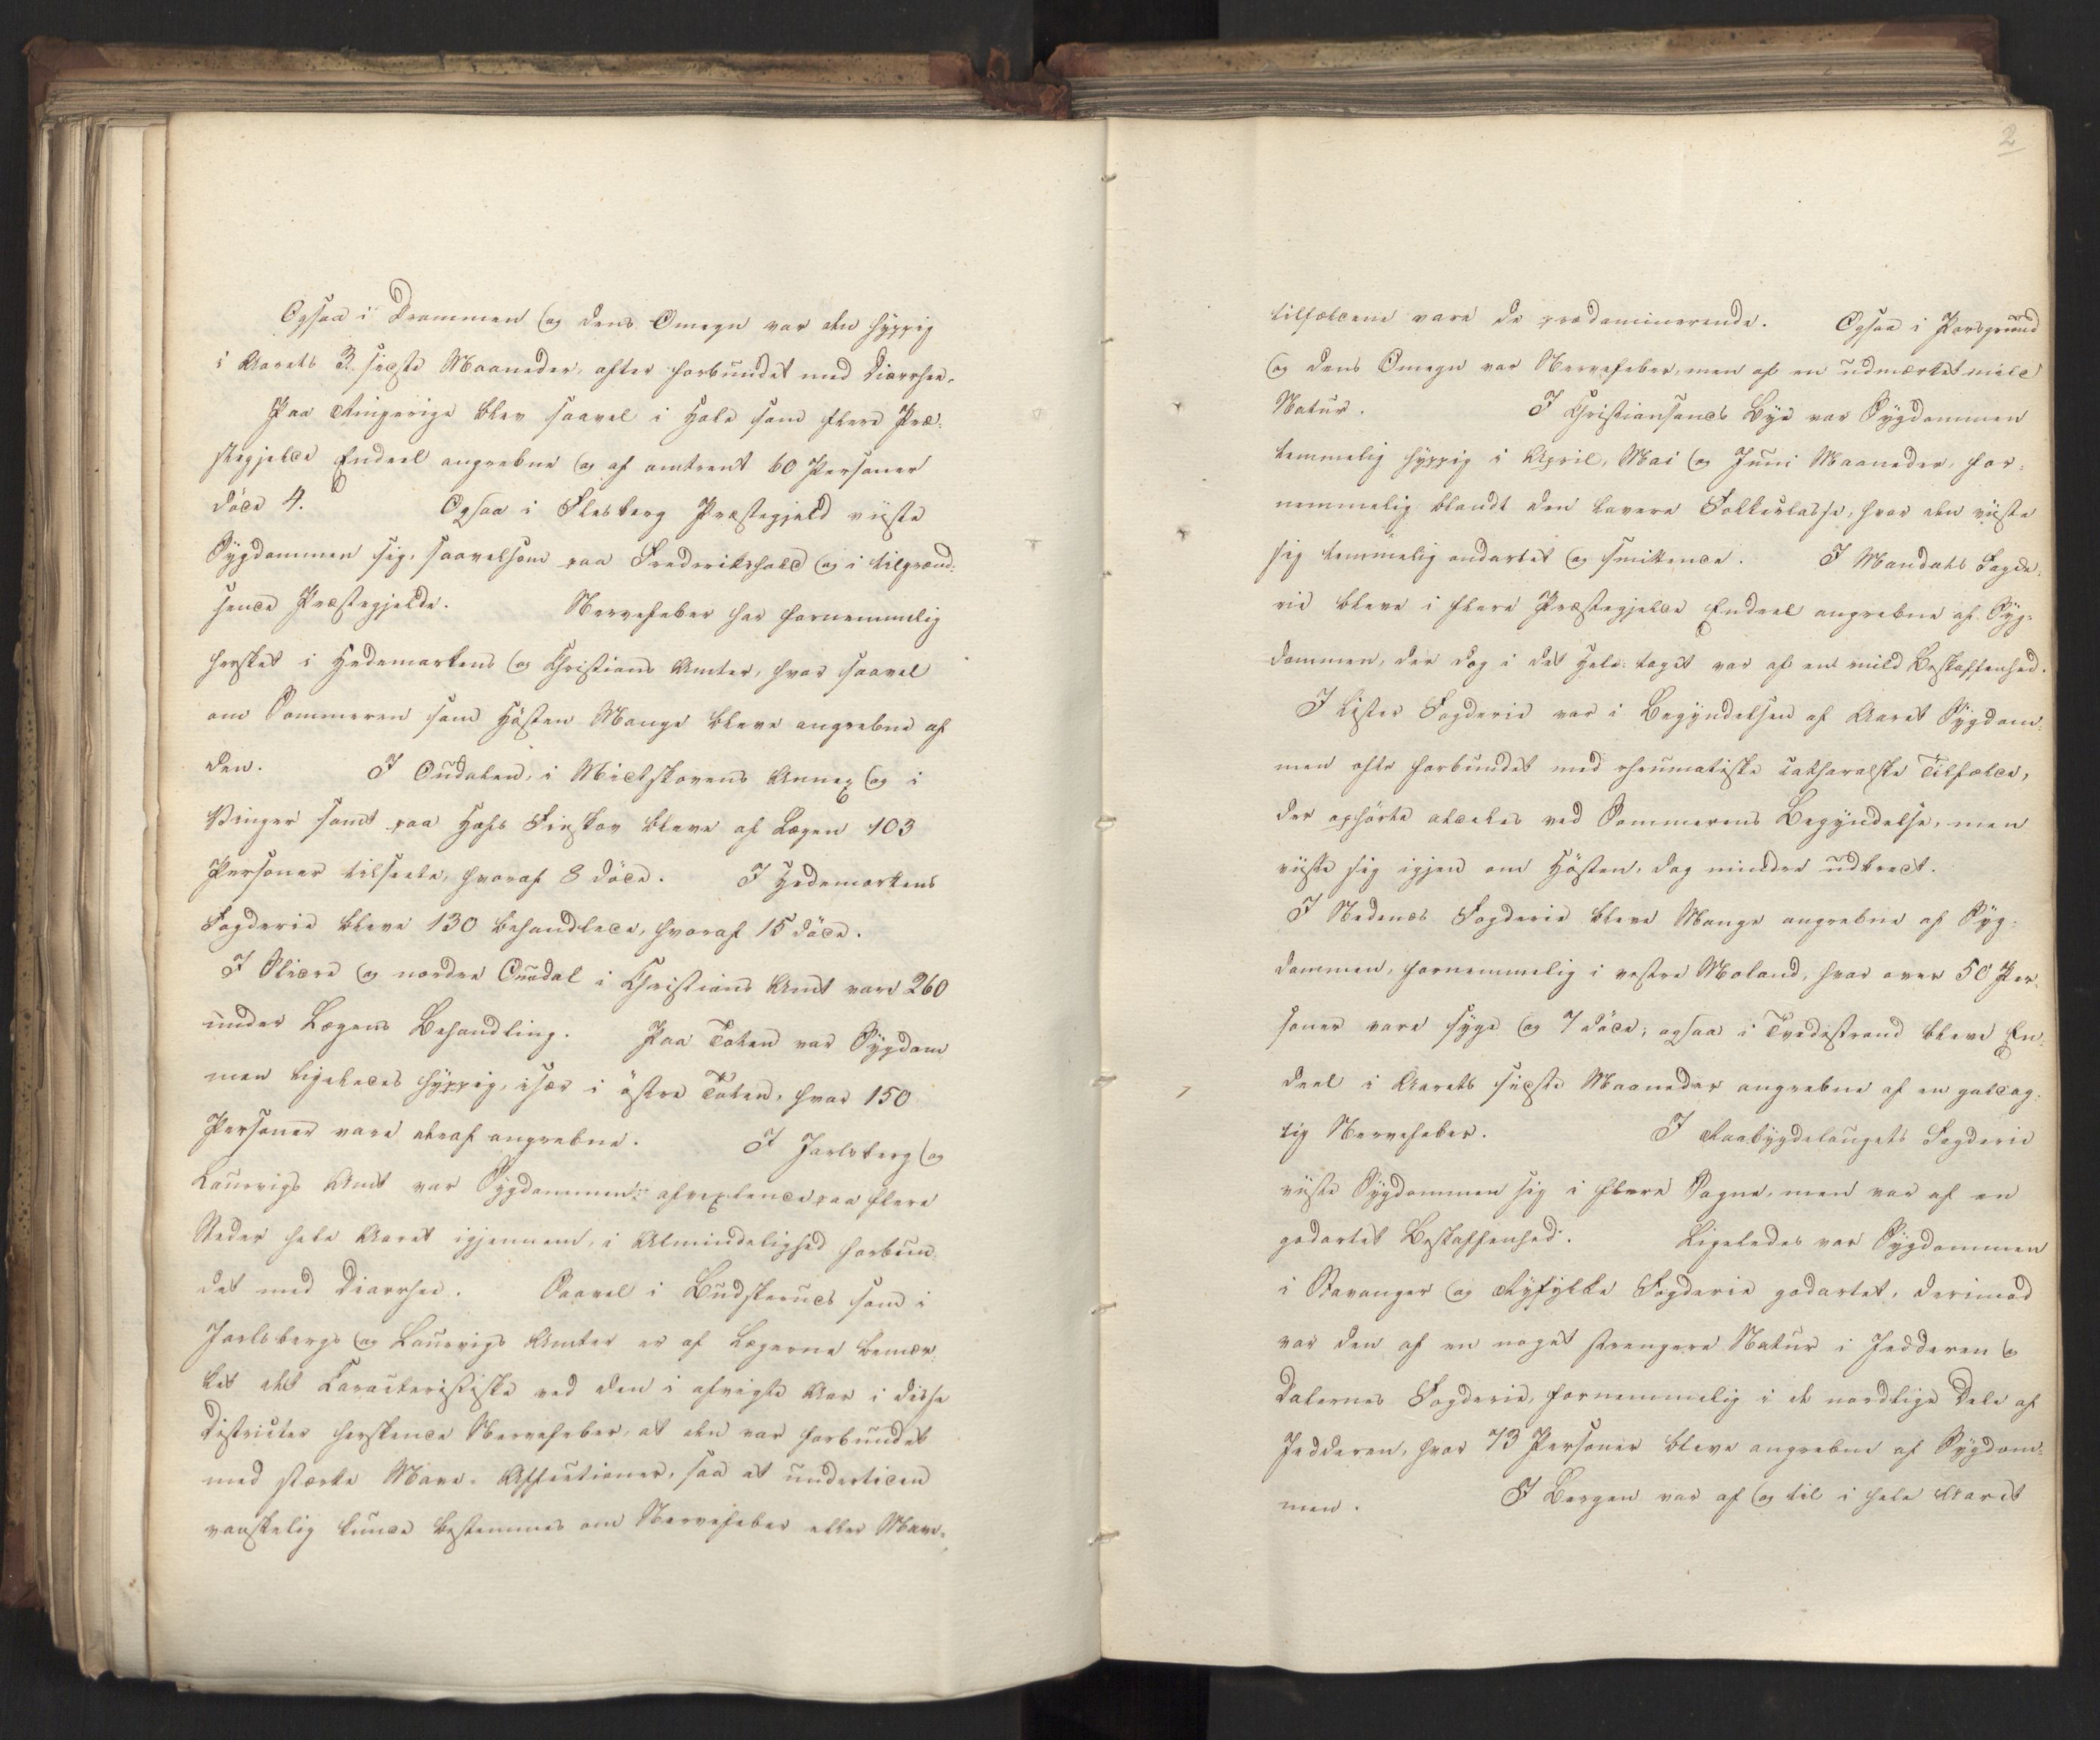 Ogsaa i Drammen og dens Omegn var den hyppig
i Aarets 3 sidste Maaneder, ofter forbundet med Diarrhee.
Paa Ringerige blev saavel i Hole som flere Præ-
stegjelde Endeel angrebne og af omtrent 60 Personer
döde 4. Ogsaa i Flesberg Præstegjeld viiste
Sygdommen sig, saavelsom paa Frederikshald og i tilgrænd-
sende Præstegjelde. Nervefeber har fornemmelig
hersket i Hedemarkens og Christians Amter, hvor saavel
om Sommeren som Hösten Mange bleve angrebne af
den. I Oudalen, i Midtskovens Annex og i
Vinger samt paa Hofs Finskov bleve af Lægen 103
Personer tilseete, hvoraf 8 döde. I Hedemarkens
Fogderie bleve 130 behandlede, hvoraf 15 döde.
I Slidre og nordre Ourdal i Christians Amt vare 260
under Lægens Behandling. Paa Toten var Sygdom
men ligeledes hyppig, især i östre Toten, hvor 150
Personer vare deraf angrebne. I Jarlsberg og
Laurvigs Amt var Sygdommen afvexlende paa flere
Steder hele Aaret igjennem, i Almindelighed forbun-
det med Diarrhee. Saavel i Budskeruds som i
Jarlsbergs og Laurvigs Amter er af Lægerne bemær-
ket det Caracteristiske ved den i afvigte Aar i disse
Districter herskende Nervefeber, at den var forbundet
med stærke Mave-Affectioner, saa at undertiden
vanskelig kunde bestemmes om Nervefeber eller Mave-
2
tilfældene vare de prædominerende. Ogsaa i Porsgrund
og dens Omegn var Nervefeber, men af en udmærket mild
Natur. I Christiansands Bye var Sygdommen
temmelig hyppig i April, Mai og Juni Maaneder, for-
nemmelig blandt den lavere Folkeclasse, hvor den viiste
sig temmelig ondartet og smittende. I Mandals Fogde-
rie bleve i flere Præstegjelde Endeel angrebne af Syg-
dommen, der dog i det Hele taget var af en mild Beskaffenhed.
I Lister Fogderie var i Begyndelsen af Aaret Sygdom-
men ofte forbundet med rheumatiske catharalske Tilfælde,
der ophörte aldeles ved Sommerens Begyndelse, men
viiste sig igjen om Hösten, dog mindre udbredt.
I Nedenæs Fogderie bleve Mange angrebne af Syg-
dommen, fornemmelig i vestre Moland, hvor over 50 Per-
soner vare syge og 7 döde; ogsaa i Tvedestrand bleve En-
deel i Aarets sidste Maaneder angrebne af en galdag-
tig Nervefeber. I Raabygdelaugets Fogderie
viiste Sygdommen sig i flere Sogne, men var af en
godartet Beskaffenhed. Ligeledes var Sygdommen
i Stavanger og Ryfylke Fogderie godartet, derimod
var den af en noget strengere Natur i Jedderen og
Dalernes Fogderie, fornemmelig i de nordlige Dele af
Jedderen, hvor 73 Personer bleve angrebne af Sygdom-
men. I Bergen var af og til i hele Aaret